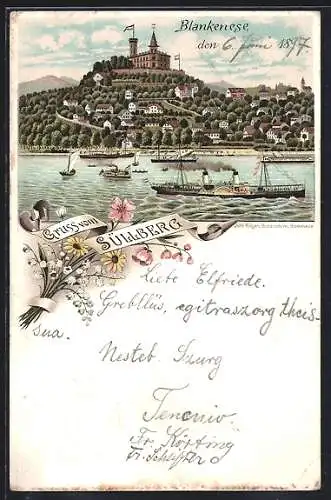 Blankenese,
den 6. Juni 1897.
Gruss vom
SÜLLBERG
Liebe Elfriede.
Grebllüs, egitraszorg theis-
sua.
Nesteb. Szurg
Tenenio
Fr. Körting